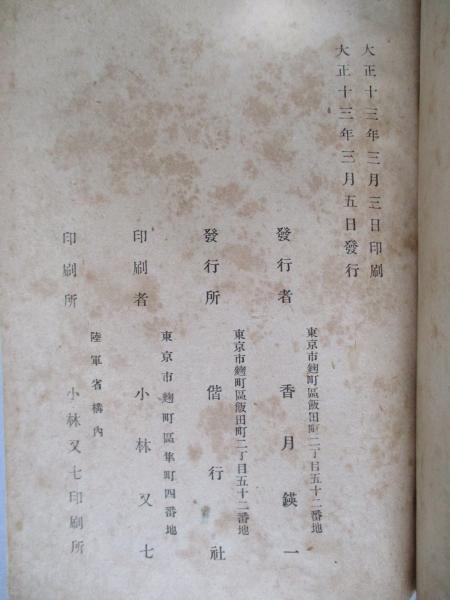 大正十三年三月三日印刷
大正十三年三月五日發行
東京市麹町區飯田町二丁目五十二番地
發行者 香月鍈一
東京市麹町區飯田町二丁目五十二番地
發行所 偕行社
東京市麹町區隼町四番地
印刷者 小林又七
陸軍省構內
印刷所 小林又七印刷所